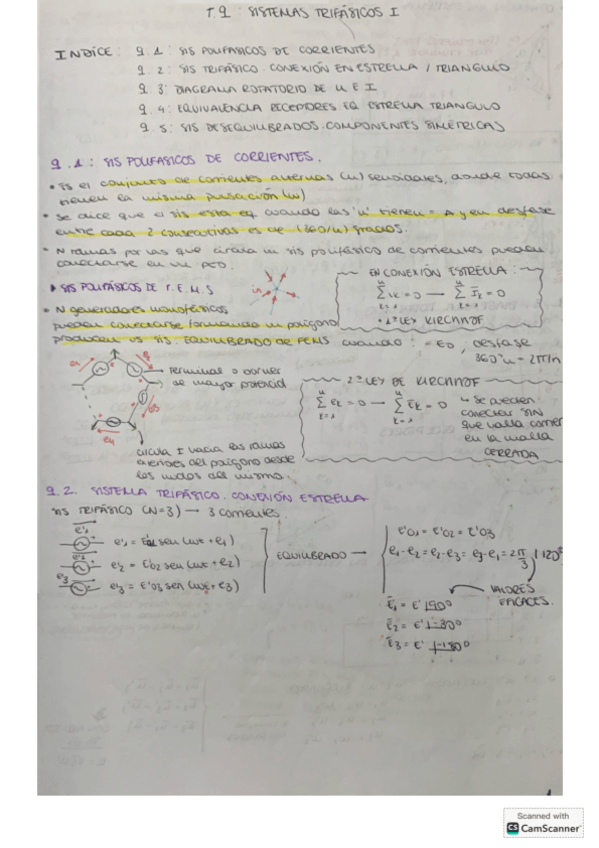 T.9: SISTEMAS TRIFÁSICOS I
INDICE: 9.1: SIS POLIFASICOS DE CORRIENTES
9.2: SIS TRIFÁSICO. CONEXIÓN EN ESTRELLA / TRIANGULO
9.3: DIAGRAMA ROTATORIO DE U E I
9.4: EQUIVALENCIA RECEPTORES EQ ESTRELLA TRIANGULO
9.5: SIS DESEQUILIBRADOS. COMPONENTES SIMÉTRICAS
9.1: SIS POLIFASICOS DE CORRIENTES.
• Es el conjunto de corrientes alternas (n) senoidales, donde todas
tienen la misma pulsación (w)
• Se dice que el sis esta eq cuando las "n" tienen = A y en desfase
entre cada 2 consecutivas es de (360/n) grados.
• N ramas por las que circula un sis polifásico de corrientes pueden
conectarse en un pto
▸ SIS POLIFÁSICOS DE F.E.M.S
EN CONEXIÓN ESTRELLA:
n Σ k=1 ik = 0 → n Σ k=1 Īk = 0
• 1ª LEY KIRCHHOF
• N generadores monofásicos
pueden conectarse formando un polígono
producen us sis. EQUILIBRADO de FEMS cuando: = E0, desfase
360º/n = 2π/n
Terminal o borner
de mayor potencial
2ª LEY DE KIRCHHOF
n Σ k=1 ek = 0 → n Σ k=1 Ēk = 0
↳ Se pueden
conectar SIN
que valla corrier
en la malla
CERRADA
circula I hacia las ramas
exteriores del polígono desde
los nudos del mismo.
9.2. SISTEMA TRIFÁSICO. CONEXIÓN ESTRELLA
SIS TRIFÁSICO (N=3) → 3 corrientes.
e'1 = E'01 sen (wt + φ1)
e'2 = E'02 sen (wt + φ2)
e'3 = E'03 sen (wt + φ3)
EQUILIBRADO →
E'01 = E'02 = E'03
φ1 - φ2 = φ2 - φ3 = φ3 - φ1 = 2π/3 / 120º
VALORES
EFICACES.
Ē1 = E' |90º
Ē2 = E' |-30º
Ē3 = E' |-150º
1
Scanned with
CS CamScanner